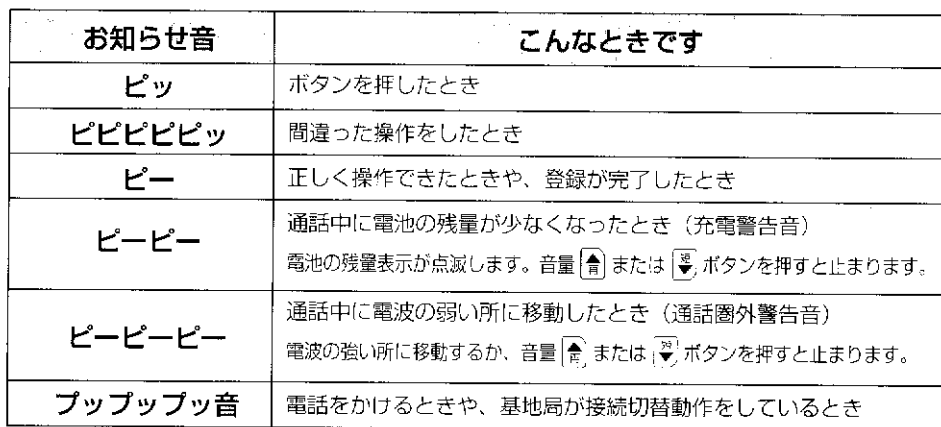 お知らせ音 こんなときです
ピッ ボタンを押したとき
ピピピピピッ 間違った操作をしたとき
ピー 正しく操作できたときや、登録が完了したとき
ピーピー 通話中に電池の残量が少なくなったとき（充電警告音）
電池の残量表示が点滅します。音量 ▲ または ▼ ボタンを押すと止まります。
ピーピーピー 通話中に電波の弱い所に移動したとき（通話圏外警告音）
電波の強い所に移動するか、音量 ▲ または ▼ ボタンを押すと止まります。
プップップッ音 電話をかけるときや、基地局が接続切替動作をしているとき